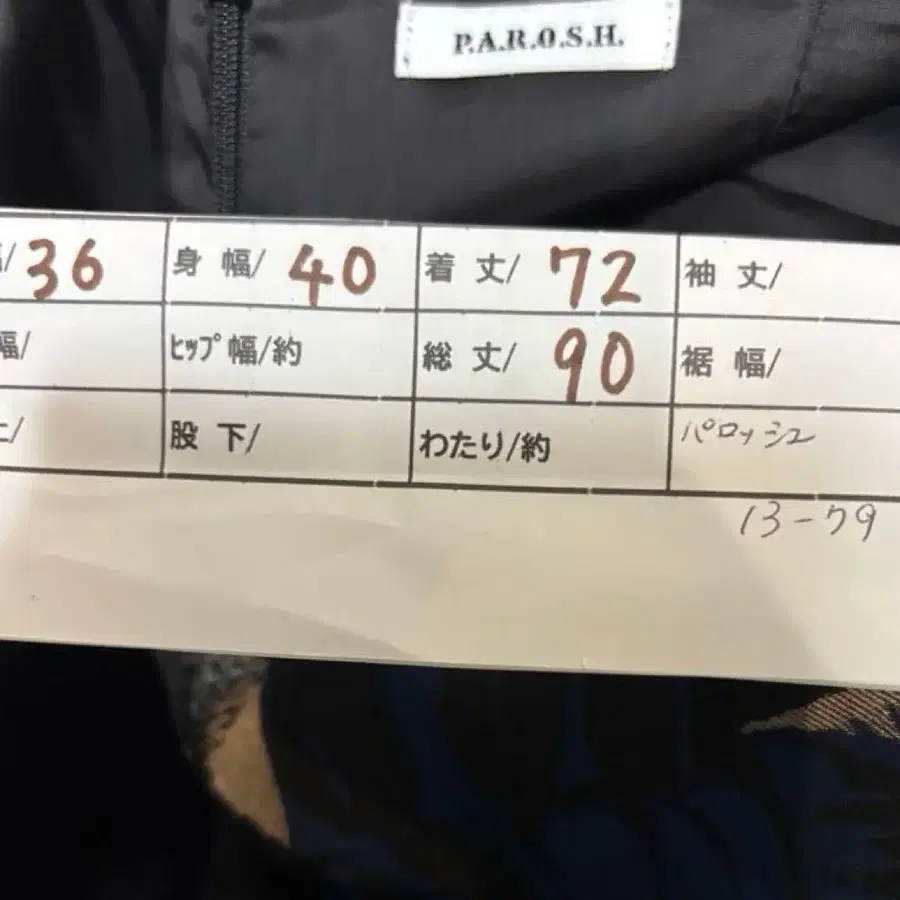 P.A.R.O.S.H.
/36 身 幅/ 40 着 丈/ 72 袖 丈/
幅/ ﾋｯﾌﾟ幅/約 総 丈/ 90 裾 幅/
上/ 股 下/ わたり/約 パロッシュ
13-79